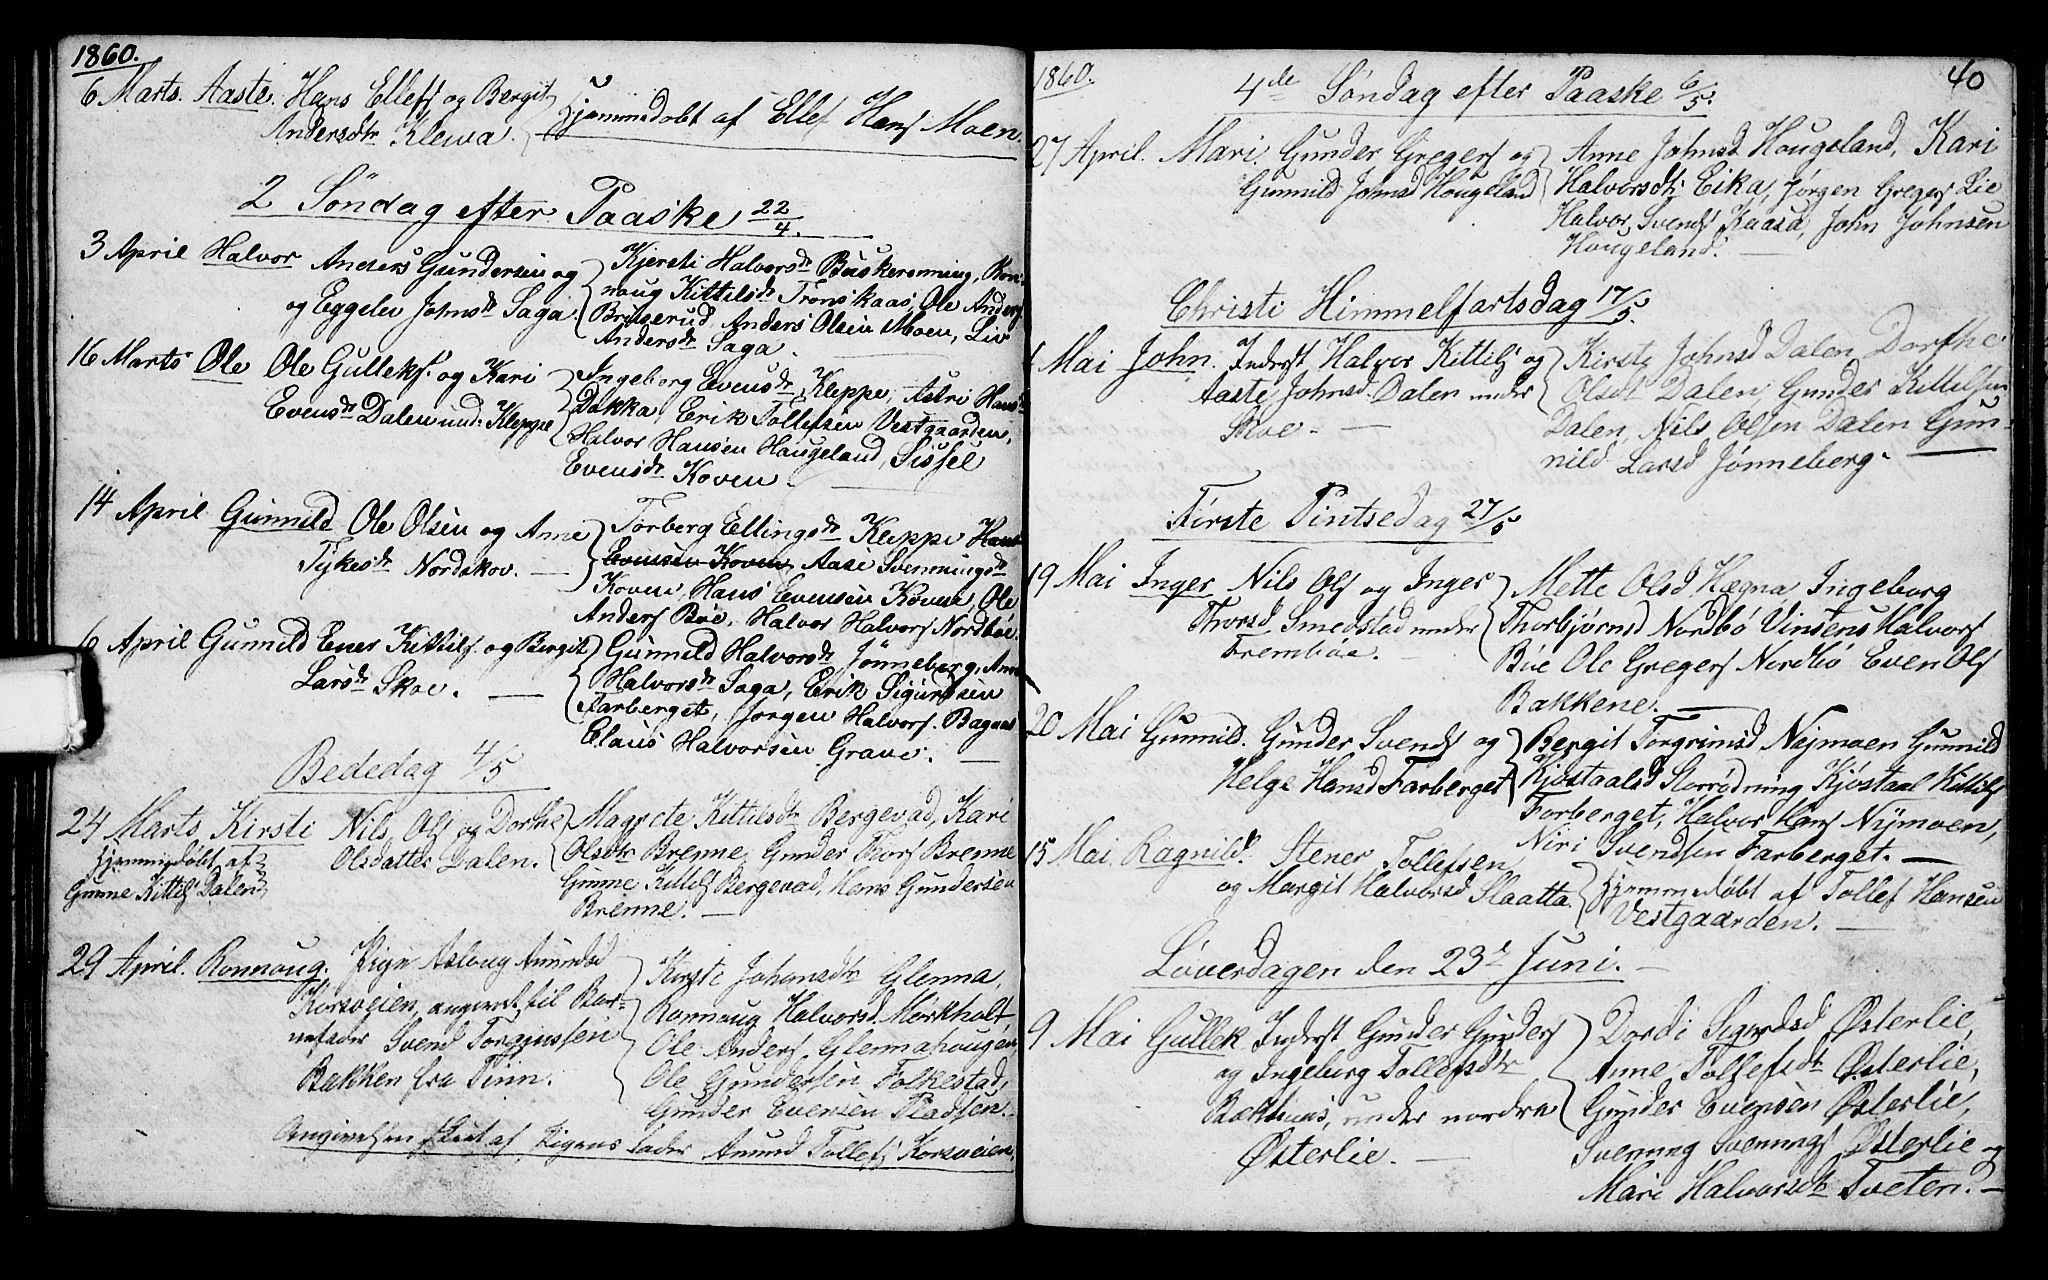 1860.
6 Marts. Aaste. Hans Ellefs og Bergit
Andersdtr Klewa. Hjemmedøbt af Ellef Hans Moen.
2 Søndag efter Paaske 22/4.
3 April Halvor Anders Gundersen og
og Eggelev Johnsdtr Saga
Kjersti Halvorsdtr Buskerønning, Ron-
noug Kittilsdtr Tronskaas, Ole Anders
Anders Olsen Moen, Liv
Andersdtr Saga.
16 Marts Ole Ole Gulleks. og Kari
Evensdtr Dalen und: Kleppe
Ingeborg Evensdtr Kleppe, Astri Hansdtr
Dakka, Erik Tollefsen Vestgaarden,
Halvor Hansen Haugeland, Sissel
Evensdtr Koven
14 April Gunnild Ole Olsen og Anne
Tykesdtr Nordskov.
Torberg Ellingsdtr Kleppe Hans
Evensen Koven, Aase Svenningsdtr
Koven, Hans Evensen Koven, Ole
Anders Bøe, Halvor Halvors Nordbøe.
6 April Gunnild Ener Kittils. og Bergit
Larsdtr Skoe.
Gunnild Halvorsdtr Jønneberg, Anne
Halvorsdtr Saga, Erik Sigurdsen
Farberget, Jørgen Halvors. Bagaas
Claus Halvorsen Grave.
Bededag 4/5
24 Marts Kirsti Nils Ols og Dorthe
Olsdatter Dalen.
hjemmedøbt af
Gunne Kittils Dalen
Magrete Kittilsdtr Bergevad, Kari
Olsdtr Brenne, Gunder Thors Brenne
Gunne Kittils Bergevad, Hans Gundersen
Brenne.
29 April. Ronnoug. Pige Asloug Amundsd
Korsveien, angivet til Bar-
nefader Svend Torginssen
Bakken fra Tinn.
Kirsti Johansdtr Glenna,
Ronnoug Halvorsd. Mørkholt,
Ole Anders. Glennahougen
Ole Gundersen Folkestad,
Gunder Evensen Pladsen.
Angivelsen skeet af Pigens Fader Amund Tollefs Korsveien.
1860. 4de Søndag efter Paaske 6/5. 40
27 April. Mari. Gunder Gregers og
Gunnild Johnsd Hougeland
Anne Johnsd Hougeland, Kari
Halvorsdtr Eika, Jørgen Gregers Lie
Halvor Svends Kaasa, John Johnsen
Hougeland.
Christi Himmelfartsdag 17/5.
Mai John. Inderst Halvor Kittils og
Aaste Johnsd. Dalen under
Skoe.
Kirsti Johnsd Dalen Dorthe
Olsdt Dalen, Gunder Kittilsen
Dalen, Nils Olsen Dalen Gun-
nild Larsd Jønneberg.
Første Pintsedag 27/5
19 Mai Inger Nils Ols og Inger
Thorsd Smedstad under
Frembøe.
Mette Olsd Hægna Ingeborg
Thorbjørnsd Nordbö Vinsens Halvors
Bøe Ole Gregers Nordbö Even Ols
Bakkene.
20 Mai Gunnild. Gunder Svends og
Helge Hansd Farberget
Bergit Torgrimsd Nymoen Gunnild
Kjøstaalsd Storrødning Kjøstaal Kittils
Forberget, Halvor Hans Nymoen,
Niri Svendsen Farberget.
15 Mai Ragnild. Stener Tollefsen
og Margit Halvorsd Slaatta.
hjemmedøbt af Tollef Hansen
Vestgaarden.
Løverdagen den 23de Juni.
9 Mai Gullek Inderst Gunder Gunders
og Ingeborg Tollefsdtr
Bakhuus, under nordre
Østerlie.
Dordi Sigurdsd Østerlie,
Anne Tollefsdtr Østerlie,
Gunder Svensen Østerlie,
Svenning Svennings Østerlie og
Mari Halvorsdtr Tveten.